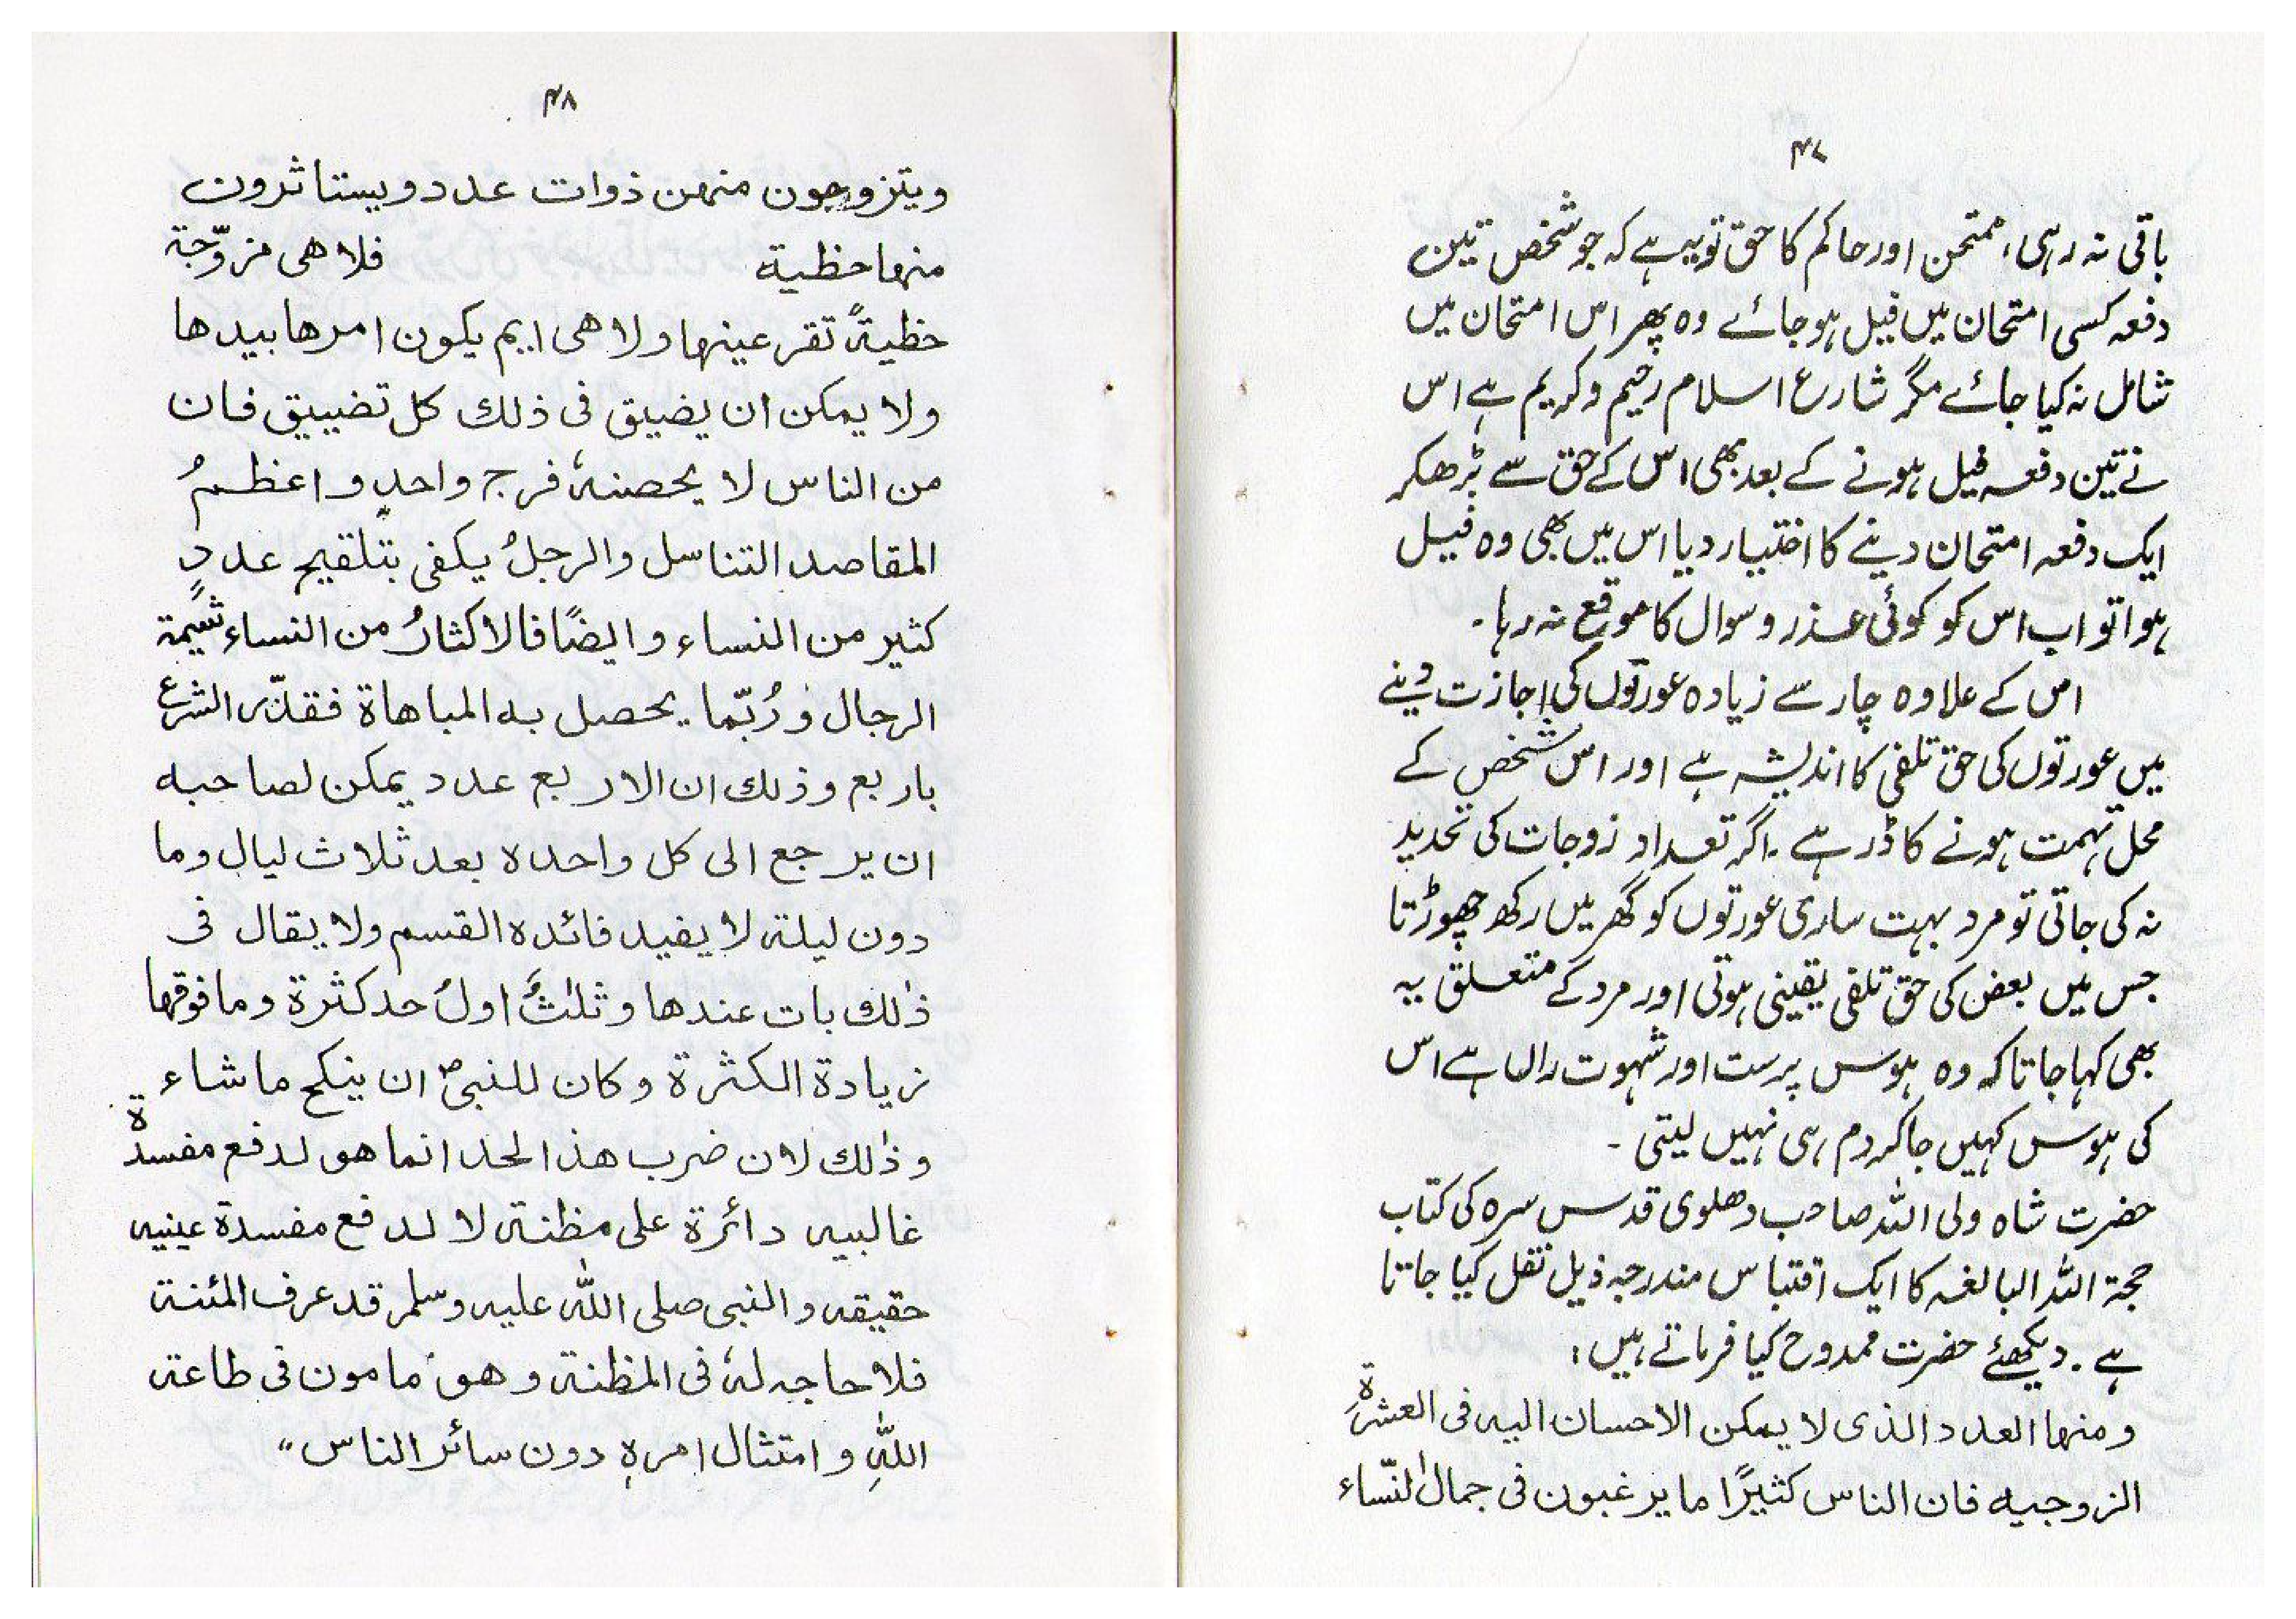 ۴۷
باقی نہ رہی، ممتحن اور حاکم کا حق تو یہ ہے کہ جو شخص تین
دفعہ کسی امتحان میں فیل ہو جائے وہ پھر اس امتحان میں
شامل نہ کیا جائے مگر شارع اسلام رحیم و کریم ہے اس
نے تین دفعہ فیل ہونے کے بعد بھی اس کے حق سے بڑھکر
ایک دفعہ امتحان دینے کا اختیار دیا اس میں بھی وہ فیل
ہوا تو اب اس کو کوئی عذر و سوال کا موقع نہ رہا۔
اس کے علاوہ چار سے زیادہ عورتوں کی اجازت دینے
میں عورتوں کی حق تلفی کا اندیشہ ہے اور اس شخص کے
محل تہمت ہونے کا ڈر ہے۔ اگر تعداد زوجات کی تحدید
نہ کی جاتی تو مرد بہت ساری عورتوں کو گھر میں رکھ چھوڑتا
جس میں بعض کی حق تلفی یقینی ہوتی اور مرد کے متعلق یہ
بھی کہا جاتا کہ وہ ہوس پرست اور شہوت راں ہے اس
کی ہوس کہیں جا کر دم ہی نہیں لیتی۔
حضرت شاہ ولی اللہ صاحب دھلوی قدس سرہ کی کتاب
حجۃ اللہ البالغہ کا ایک اقتباس مندرجہ ذیل نقل کیا جاتا
ہے۔ دیکھئے حضرت ممدوح کیا فرماتے ہیں:
ومنہا العدد الذی لا یمکن الاحسان الیہ فی العشرۃِ
الزوجیہ فان الناس کثیرًا ما یرغبون فی جمال النّساء
۴۸
ویتزوجون منہن ذوات عدد ویستاثرون
منہا حظیۃ فلا ھی مزوّجۃ
حظیۃً تقر عینہا ولا ھی ایم یکون امرھا بیدھا
ولا یمکن ان یضیق فی ذلک کل تضییق فان
من الناس لا یحصنہٗ فرج واحدٍ و اعظمُ
المقاصد التناسل والرجلُ یکفی بتلقیح عددٍ
کثیر من النساء و ایضًا فالاکثارُ من النساء شیمۃ
الرجال و رُبّما یحصل بہ المباھاۃ فقدّر الشرع
باربع وذلک ان الاربع عدد یمکن لصاحبہ
ان یرجع الی کل واحدہ بعد ثلاث لیال وما
دون لیلۃ لا یفید فائدہ القسم ولا یقال فی
ذٰلک بات عندھا و ثلٰثٌ اولُ حد کثرۃ وما فوقہا
زیادۃ الکثرۃ وکان للنبیؐ ان ینکح ماشاء
وذٰلک لان ضرب ھذا الحد انما ھو لدفع مفسدۃ
غالبیہ دائرۃ علی مظنۃ لا لدفع مفسدۃ عینیہ
حقیقہ والنبی صلی اللہ علیہ وسلم قد عرف المئنۃ
فلا حاجہ لہٗ فی المظنۃ و ھو مامون فی طاعۃ
اللہِ و امتثال امرہٖ دون سائر الناس"